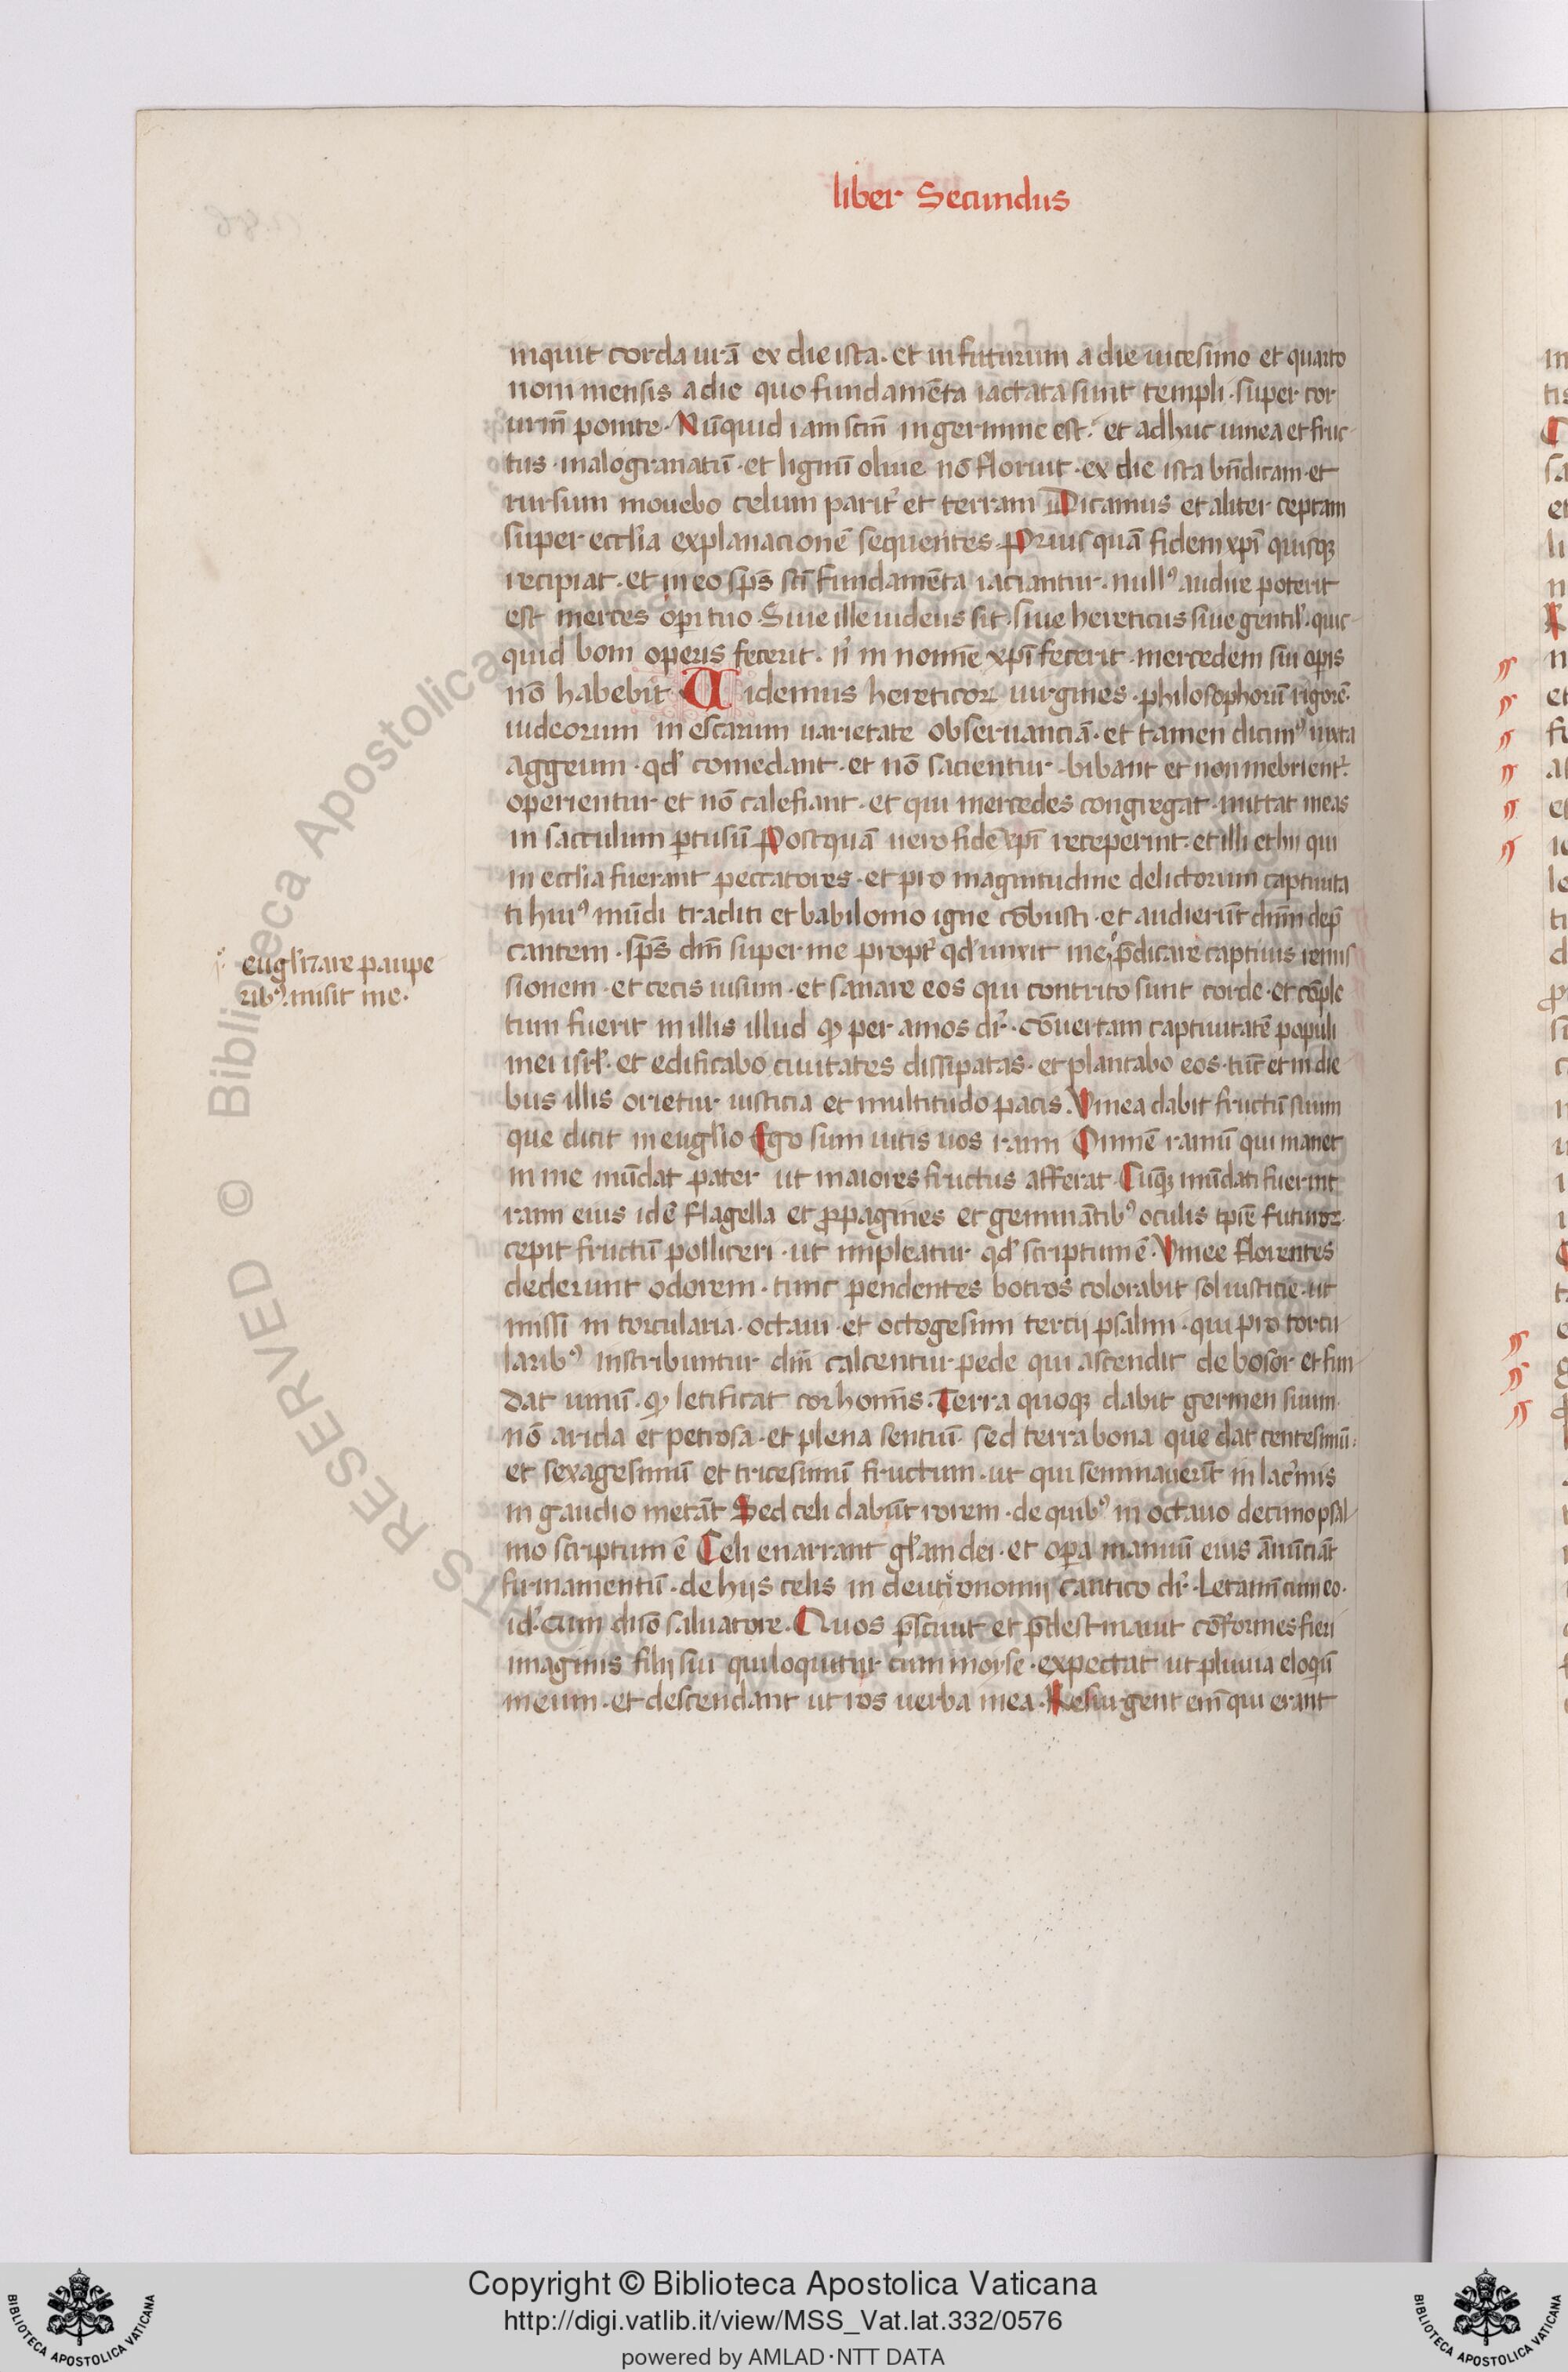 liber Secundus
inquit corda ur̄a ex die ista. et in futurum a die uicesimo et quarto
noni mensis a die quo fundamēta iactata sunt templi. super cor
urm̄ ponite. Nūquid iam sem̄ in germine est. et adhuc uinea et fruc
tus. malogranatū. et lignū oliue nō floruit. ex die ista bn̄dicam. et
rursum mouebo celum parit᷑ et terram Dicamus et aliter ceptam
super eccl'ia explanacionē sequentes. Priusquā fidem xp̄i quisqȝ
recipiat. et in eo sp̄s sc̄i fundamēta iaciantur. nullꝰ audire poterit
est merces op̄i tuo. Siue ille iudeus sit. siue hereticus siue gentil'. quic
quid boni operis fecerit. n' in nomīe xp̄i fecerit. mercedem sui op̄is
nō habebit Uidemus hereticoꝝ uirgines. philosophorū rigorē.
iudeorum in escarum uarietate obseruanciā. et tamen dicimꝰ iuxta
aggeum. qd' comedant. et nō sacientur. bibant et non inebrient᷑.
operientur et nō calefiant. et qui mercedes congregat. mittat meas
in sacculum ꝑtusū Postquā uero fidē xp̄i receperint. et illi et hii qui
in eccl'ia fuerant peccatores. et pro magnitudine delictorum captiuita
ti huiꝰ mūdi traditi et babilonio igne cōbusti. et audierūt dn̄m dep̄
cantem. sp̄s dn̄i super me propt᷑ qd' unxit me, p̄dicare captiuis remis
sionem. et cecis uisum. et sanare eos qui contrito sunt corde. et cōple
tum fuerit in illis illud ꝙ per amos dr̄. cōuertam captiuitatē populi
mei isrl'. et edificabo ciuitates dissipatas. et plantabo eos. tūc et in die
bus illis orietur iusticia et multitudo pacis. Vinea dabit fructū suum
que dicit in euglīo Ego sum uitis uos rami Omnē ramū qui manet
in me mūdat pater ut maiores fructus afferat. Cūqȝ mūdati fuerint
rami eius idē flagella et ꝓpagines et geminātibꝰ oculis tp̄re futuroꝝ
cepit fructū polliceri. ut impleatur qd' scriptum ē. Vinee florentes
dederunt odorem. tunc pendentes botros colorabit sol iusticie. ut
missi in torcularia. octaui. et octogesimi tercij psalmi. qui pro torcu
laribꝰ inscribuntur dn̄i calcentur pede qui ascendit de bosor et fun
dat uinū. ꝙ letificat cor homīs. Terra quoqȝ dabit germen suum.
nō arida et petrosa. et plena sentiū. sed terra bona que dat centesimū.
et sexagesimū et tricesimū fructum. ut qui seminauerūt in lac'mis
in gaudio metāt Sed celi dabūt rorem. de quibꝰ in octauo decimo psal
mo scriptum ē Celi enarrant gl'am dei. et oꝑa manuū eius ānūciāt
firmamentū. de hijs celis in deuteronomij cantico dr̄. Letamī cum eo.
id'. cum dn̄o saluatore. Quos p̄sciuit et p̄destinauit cōformes fieri
imaginis filij sui qui loquitur cum moyse. expectat ut pluuia eloqiū
meum. et descendant ut ros uerba mea. Resurgent em̄ qui erant
eugl'izare paupe
ribꝰ. misit me.
© Biblioteca Apostolica Vaticana
Copyright © Biblioteca Apostolica Vaticana
http://digi.vatlib.it/view/MSS_Vat.lat.332/0576
powered by AMLAD·NTT DATA
BIBLIOTECA APOSTOLICA VATICANA
BIBLIOTECA APOSTOLICA VATICANA